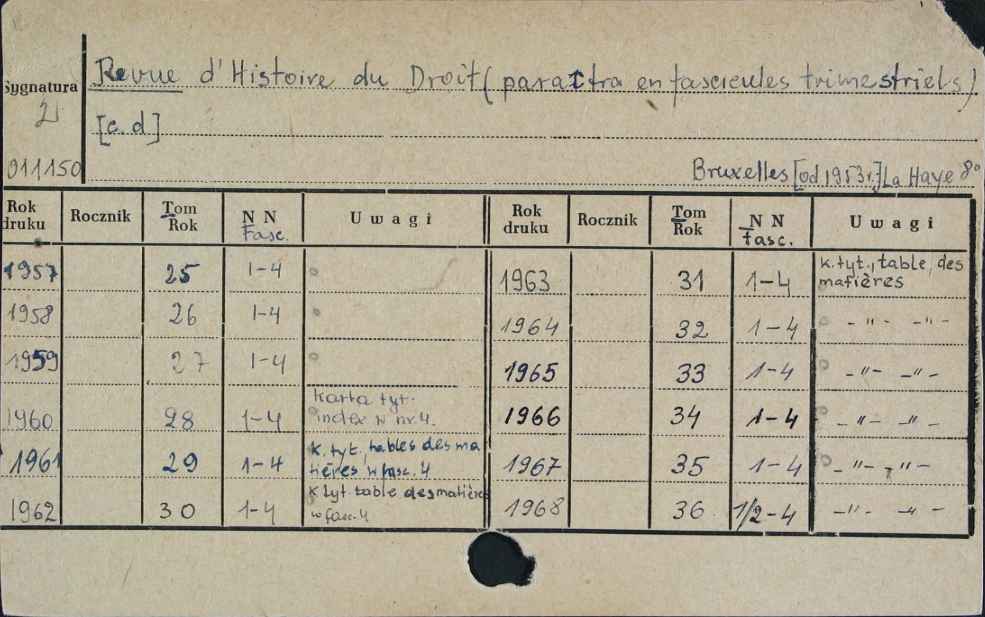 Sygnatura
2
011150
Revue d'Histoire du Droit (paraîtra en fascicules trimestriels).
[c.d]
Bruxelles [od 1953r.] La Haye 8°
Rok druku Rocznik Tom Rok N N Fasc. Uwagi Rok druku Rocznik Tom Rok N N fasc. Uwagi
1957 25 1-4
1958 26 1-4
1959 27 1-4
1960 28 1-4 karta tyt. index w nr 4.
1961 29 1-4 k. tyt., tables des matières w fasc. 4
1962 30 1-4 k tyt. table des matières w fasc. 4
1963 31 1-4 k. tyt., table, des matières
1964 32 1-4 - " - - " -
1965 33 1-4 - " - - " -
1966 34 1-4 - " - - " -
1967 35 1-4 - " - , " -
1968 36 1/2-4 - " - - " -